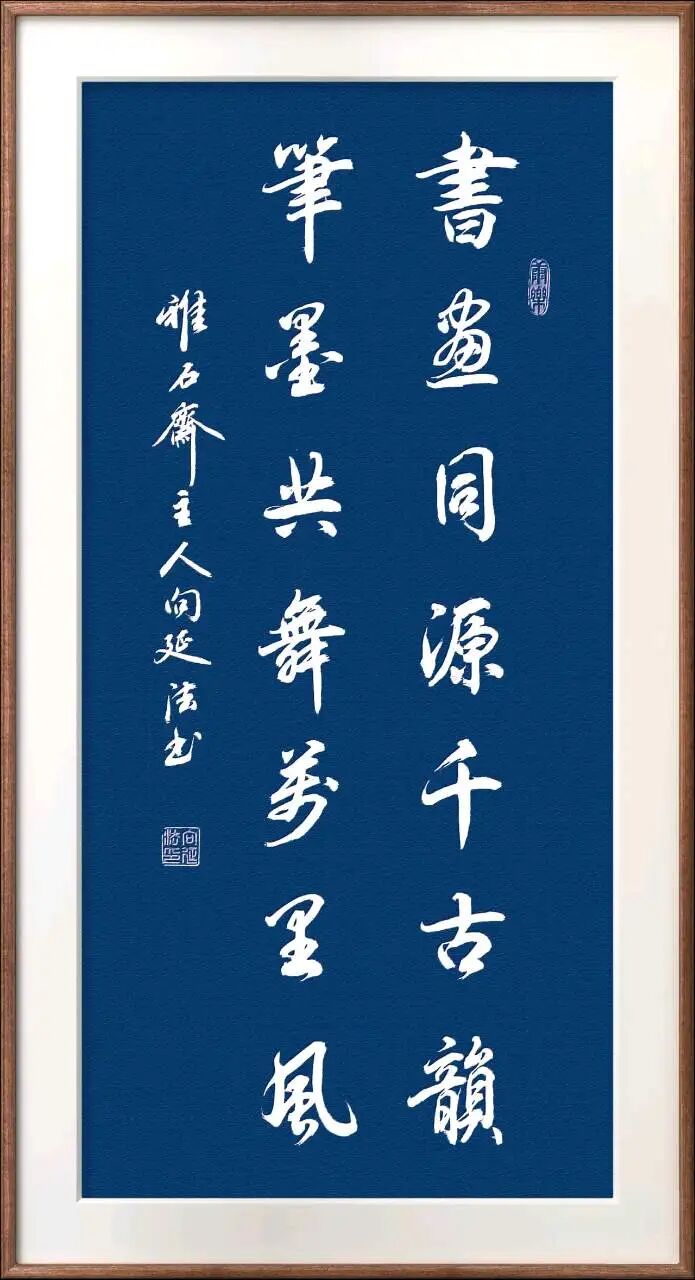 書畫同源千古韻
筆墨共舞萬里風
雅石齋主人向延法书
向延法印